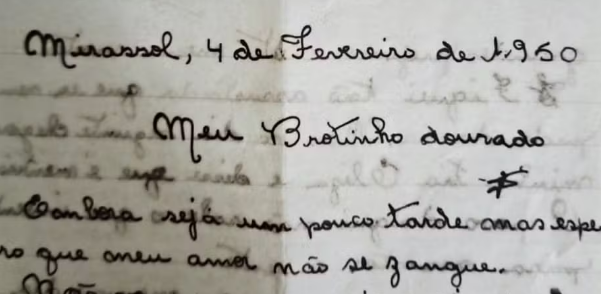 Mirassol, 4 de Fevereiro de 1.950
Meu Brotinho dourado
Embora sejá um pouco tarde mas espe
ro que meu amor não se zangue.